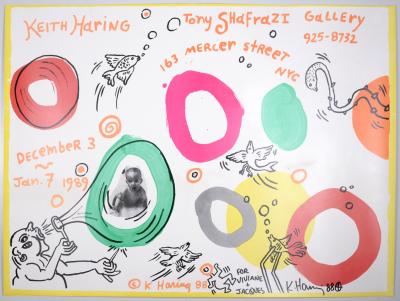 KEITH HARING
TONY SHAFRAZI GALLERY
925-8732
163 MERCER STREET
NYC
DECEMBER 3
~
JAN. 7 1989
© K. Haring 88
FOR
VIVIANE +
JACQUES
K. Haring 88